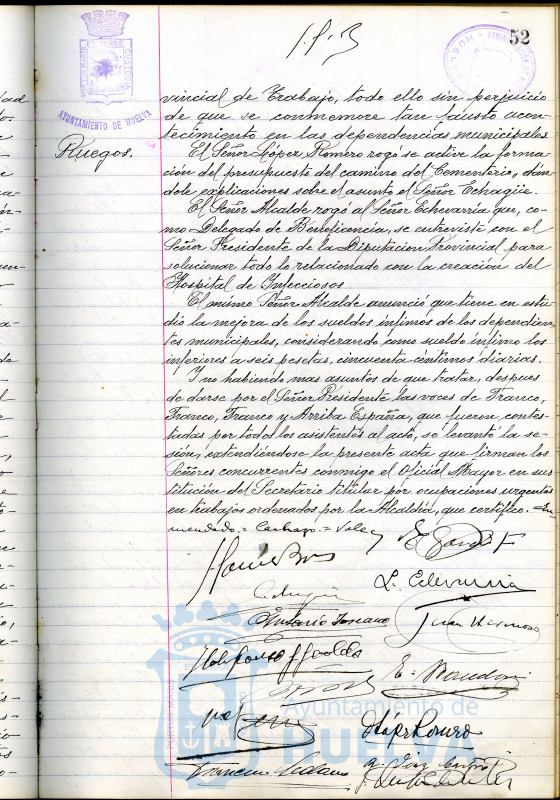 52
AYUNTAMIENTO DE HUELVA
vincial de Trabajo, todo ello sin perjuicio
de que se conmemore tan fausto acon-
tecimiento en las dependencias municipales
Ruegos.
El Señor López Romero rogó se active la forma-
ción del presupuesto del camino del Cementerio, dan-
dole explicaciones sobre el asunto el Señor Echagüe.
El Señor Alcalde rogó al Señor Echevarria que, co-
mo Delegado de Beneficiencia, se entreviste con el
Señor Presidente de la Diputacion Provincial para
solucionar todo lo relacionado con la creación del
Hospital de Infecciosos
El mismo Señor Alcalde anunció que tiene en estu-
dio la mejora de los sueldos ínfimos de los dependien-
tes municipales, considerando como sueldo ínfimo los
inferiores a seis pesetas, cincuenta céntimos diarias.
Y no habiendo mas asuntos de que tratar, despues
de darse por el Señor Presidente las voces de Franco,
Franco, Franco y Arriba España, que fueron contes-
tadas por todos los asistentes al acto, se levantó la se-
sión, extendiéndose la presente acta que firman los
Señores concurrentes conmigo el Oficial Mayor en sus-
titución del Secretario titular por ocupaciones urgentes
en trabajos ordenados por la Alcaldía, que certifico.
mendado = = Vale
L. Echevarria
Antonio Toscano
Juan Hermoso
López Romero
Ayuntamiento de
HUELVA